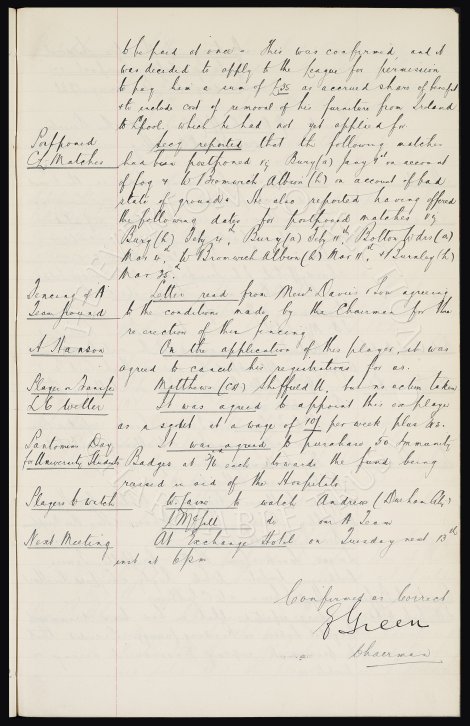 to be paid at once. This was confirmed, and it
was decided to apply to the League for permission
to pay him a sum of £35 as accrued share of benefit
& to include cost of removal of his furniture from Ireland
to L'pool, which he had not yet applied for.
Postponed
CL Matches
Secy reported that the following matches
had been postponed viz Bury (a) Jany 1st on account
of fog & W. Bromwich Albion (h) on account of bad
state of ground. He also reported having offered
the following dates for postponed matches viz
Bury (h) Feby 4th, Bury (a) Feby 11th, Bolton (a)
Mar W Bromwich Albion (h) Mar 11th & Burnley (h)
Mar 25th.
Fencing of 'A'
Team ground
Letter read from Davies & Son agreeing
to the conditions made by the Chairman for the
re erection of this fencing
A. Hanson
On the application of this player, it was
agreed to cancel his registrations for us.
Players on Transfer
Matthews (CH) Sheffield U, but no action taken
It was agreed to appoint this ex player
as a at a wage of 10/- per week plus as.
Pantomime Day
for University Students
It was agreed to purchase 50 Immunity
Badges at each towards the fund being
raised in aid of the Hospitals
Players to watch
W. to watch Andrew (Durham City)
do our A Team
Next Meeting
At Exchange Hotel on Tuesday next 13th
inst at 6 pm
Confirmed as Correct
E Green
Chairman